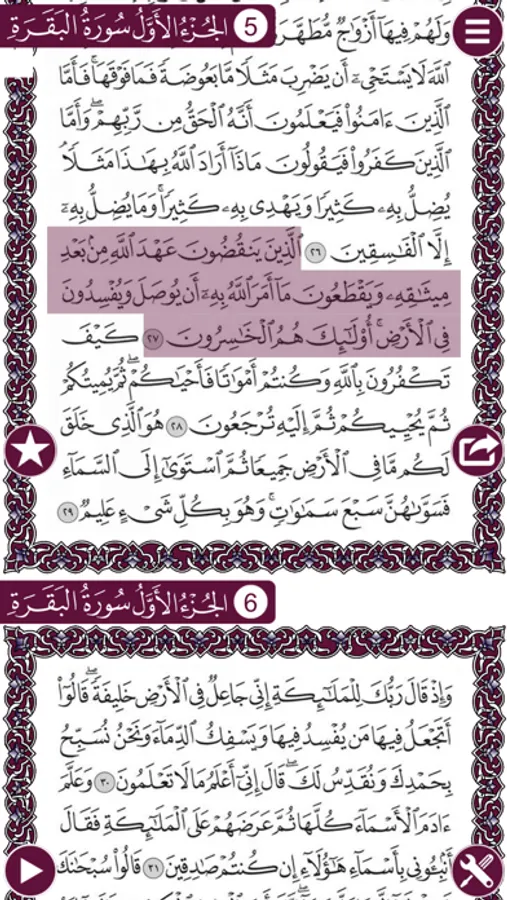 الجُزْءُ الأَوَّلُ سُورَةُ البَقَرَةِ 5
وَلَهُمْ فِيهَآ أَزْوَٰجٌ مُّطَهَّرَةٌ
ٱللَّهَ لَا يَسْتَحْىِۦٓ أَن يَضْرِبَ مَثَلًا مَّا بَعُوضَةً فَمَا فَوْقَهَا ۚ فَأَمَّا
ٱلَّذِينَ ءَامَنُوا۟ فَيَعْلَمُونَ أَنَّهُ ٱلْحَقُّ مِن رَّبِّهِمْ ۖ وَأَمَّا
ٱلَّذِينَ كَفَرُوا۟ فَيَقُولُونَ مَاذَآ أَرَادَ ٱللَّهُ بِهَـٰذَا مَثَلًا ۘ
يُضِلُّ بِهِۦ كَثِيرًا وَيَهْدِى بِهِۦ كَثِيرًا ۚ وَمَا يُضِلُّ بِهِۦٓ
إِلَّا ٱلْفَـٰسِقِينَ ٢٦ ٱلَّذِينَ يَنقُضُونَ عَهْدَ ٱللَّهِ مِنۢ بَعْدِ
مِيثَـٰقِهِۦ وَيَقْطَعُونَ مَآ أَمَرَ ٱللَّهُ بِهِۦٓ أَن يُوصَلَ وَيُفْسِدُونَ
فِى ٱلْأَرْضِ ۚ أُو۟لَـٰٓئِكَ هُمُ ٱلْخَـٰسِرُونَ ٢٧ كَيْفَ
تَكْفُرُونَ بِٱللَّهِ وَكُنتُمْ أَمْوَٰتًا فَأَحْيَـٰكُمْ ۖ ثُمَّ يُمِيتُكُمْ
ثُمَّ يُحْيِيكُمْ ثُمَّ إِلَيْهِ تُرْجَعُونَ ٢٨ هُوَ ٱلَّذِى خَلَقَ
لَكُم مَّا فِى ٱلْأَرْضِ جَمِيعًا ثُمَّ ٱسْتَوَىٰٓ إِلَى ٱلسَّمَآءِ
فَسَوَّىٰهُنَّ سَبْعَ سَمَـٰوَٰتٍ ۚ وَهُوَ بِكُلِّ شَىْءٍ عَلِيمٌ ٢٩
الجُزْءُ الأَوَّلُ سُورَةُ البَقَرَةِ 6
وَإِذْ قَالَ رَبُّكَ لِلْمَلَـٰٓئِكَةِ إِنِّى جَاعِلٌ فِى ٱلْأَرْضِ خَلِيفَةً ۖ قَالُوٓا۟
أَتَجْعَلُ فِيهَا مَن يُفْسِدُ فِيهَا وَيَسْفِكُ ٱلدِّمَآءَ وَنَحْنُ نُسَبِّحُ
بِحَمْدِكَ وَنُقَدِّسُ لَكَ ۖ قَالَ إِنِّىٓ أَعْلَمُ مَا لَا تَعْلَمُونَ ٣٠ وَعَلَّمَ
ءَادَمَ ٱلْأَسْمَآءَ كُلَّهَا ثُمَّ عَرَضَهُمْ عَلَى ٱلْمَلَـٰٓئِكَةِ فَقَالَ
أَنۢبِـُٔونِى بِأَسْمَآءِ هَـٰٓؤُلَآءِ إِن كُنتُمْ صَـٰدِقِينَ ٣١ قَالُوا۟ سُبْحَـٰنَكَ